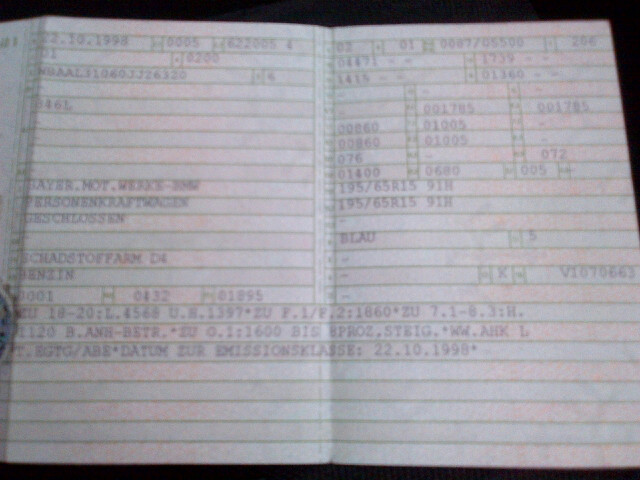 22.10.1998 0005 622005 4
01 0200
WBAAL31060JJ26320 6
346L
BAYER.MOT.WERKE-BMW
PERSONENKRAFTWAGEN
GESCHLOSSEN
-
SCHADSTOFFARM D4
BENZIN
0001 0432 01895
02 01 0087/05500 206
04471 - - 1739 - -
1415 - - 01360 - -
- - -
- 001785 001785
00860 01005 -
00860 01005 -
076 - 072
01400 0680 005 -
195/65R15 91H
195/65R15 91H
-
BLAU 5
-
- K V1070663
-
ZU 18-20:L.4568 U.H.1397*ZU F.1/F.2:1860*ZU 7.1-8.3:H.
1120 B.ANH-BETR.*ZU O.1:1600 BIS 8PROZ.STEIG.*WW.AHK L
T.EGTG/ABE*DATUM ZUR EMISSIONSKLASSE: 22.10.1998*